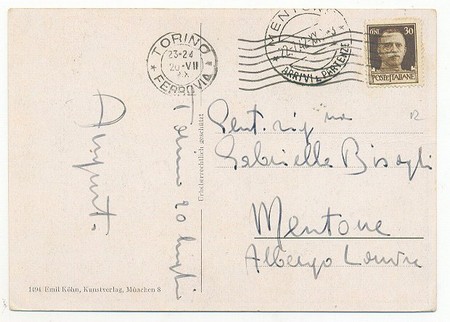 TORINO
23-24
20·VII
XX
FERROVIA
MENTON
ARRIVI E PARTENZE
CENT. 30
POSTE ITALIANE
Auguri.
Torino 20 luglio
Urheberrechtlich geschützt
Gent. sig na
Gabriella
Mentone
Albergo Louvre
1494 Emil Köhn, Kunstverlag, München 8